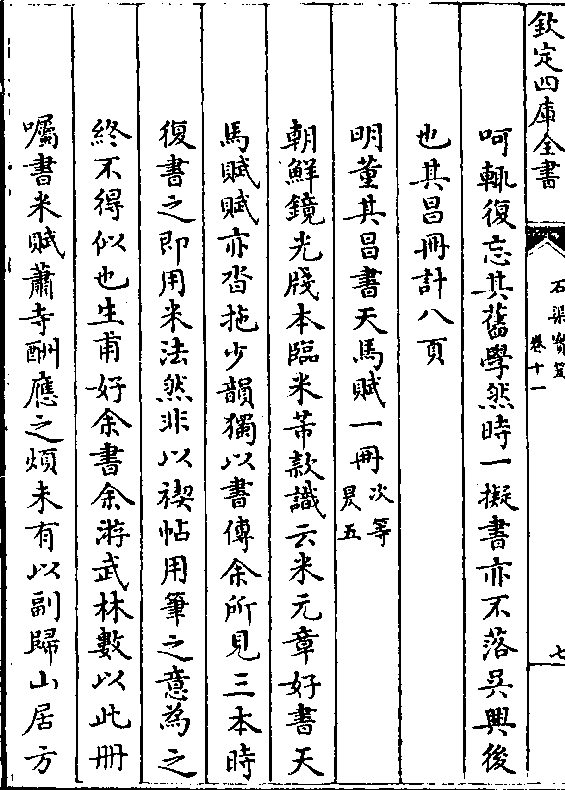 欽定四庫全書
石渠寶笈
卷十一
七
呵輒復忘其舊學然時一擬書亦不落吳興後
也其昌冊計八頁
明董其昌書天馬賦一冊次等
昃五
朝鮮鏡光牋本臨米芾款識云米元章好書天
馬賦賦亦沓拖少韻獨以書傳余所見三本時
復書之即用米法然非以禊帖用筆之意為之
終不得似也生甫好余書余游武林數以此冊
囑書米賦蕭寺酬應之煩未有以副歸山居方